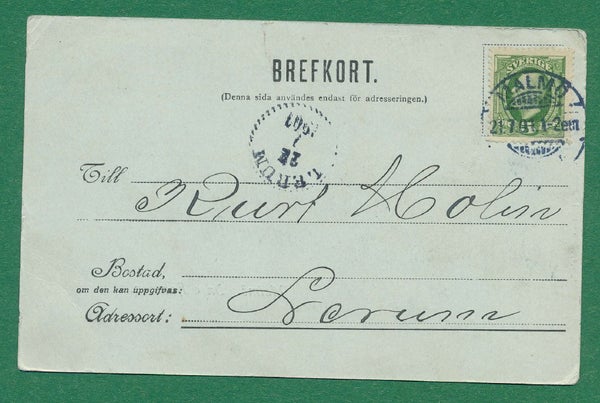 BREFKORT.
(Denna sida användes endast för adresseringen.)
SVERIGE
MALMÖ
1-2em
LERUM
22
7
1901
Till
Kurt Holin
Bostad,
om den kan uppgifvas:
Adressort:
Lerum